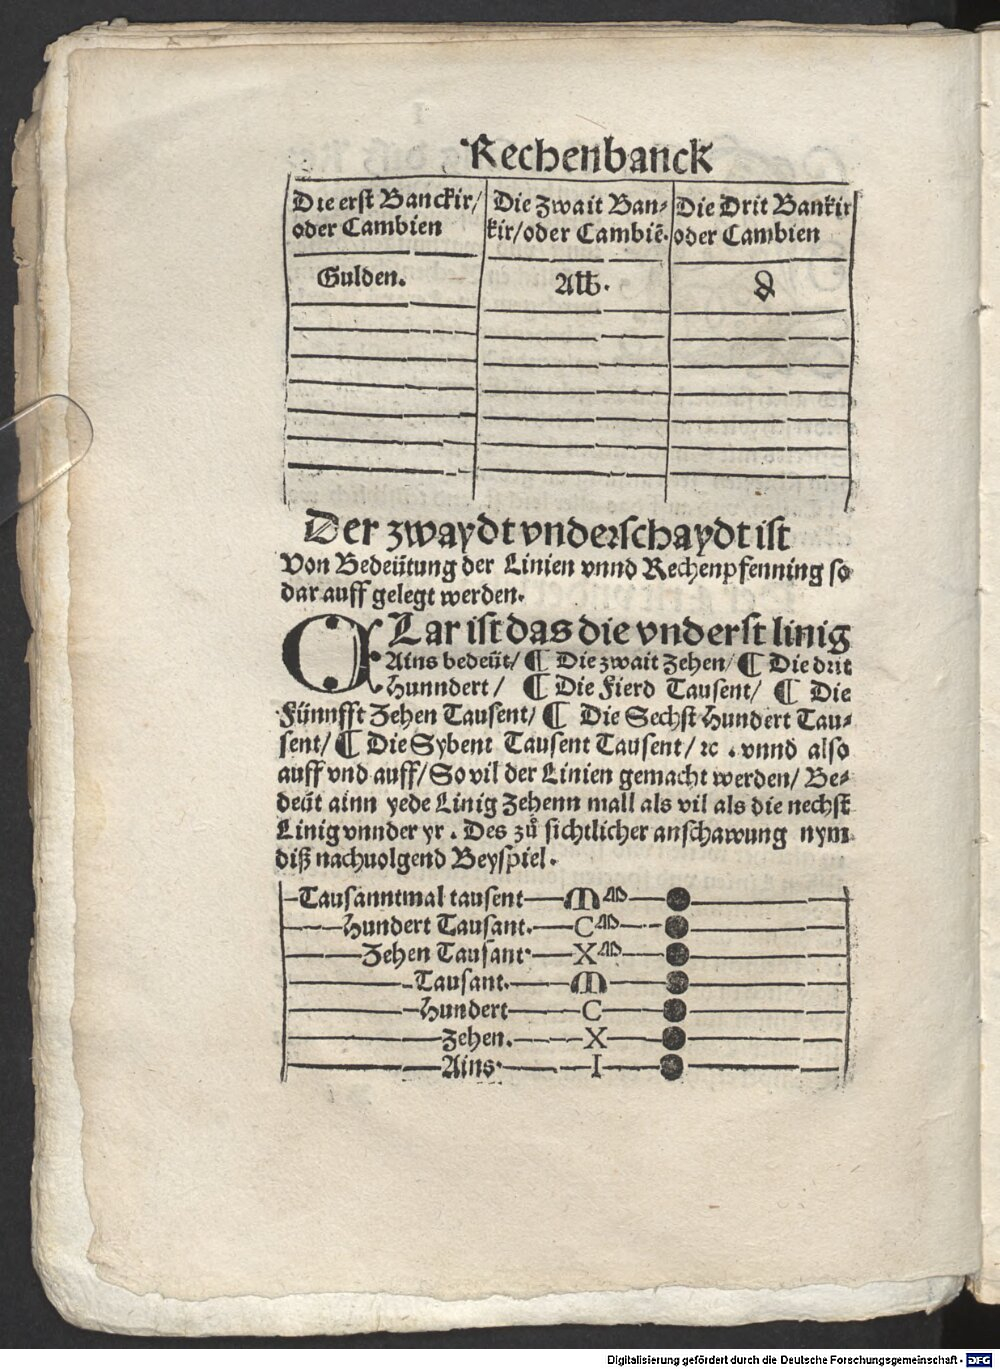 Rechenbanck
Die erst Banckir/
oder Cambien
Die Zwait Ban⸗
kir/oder Cambiẽ.
Die Drit Bankir
oder Cambien
Gulden.
Alb.
₰
Der zwaydt vnderschaydt ist
Von Bedeütung der Linien vnnd Rechenpfenning so
dar auff gelegt werden.
CLar ist das die vnderst linig
Ains bedeüt/ ¶ Die zwait Zehen/ ¶ Die drit
Hunndert/ ¶ Die Fierd Tausent/ ¶ Die
Fünnfft Zehen Tausent/ ¶ Die Sechst Hundert Tau⸗
sent/ ¶ Die Sybent Tausent Tausent/ ⁊c. vnnd also
auff vnd auff/ So vil der Linien gemacht werden/ Be⸗
deüt ainn yede Linig Zehenn mall als vil als die nechst
Linig vnnder yr. Des zů sichtlicher anschawung nym
diß nachuolgend Beyspiel.
Tausanntmal tausent M M
Hundert Tausant. C M
Zehen Tausant X M
Tausant. M
Hundert C
Zehen. X
Ains I
Digitalisierung gefördert durch die Deutsche Forschungsgemeinschaft - DFG